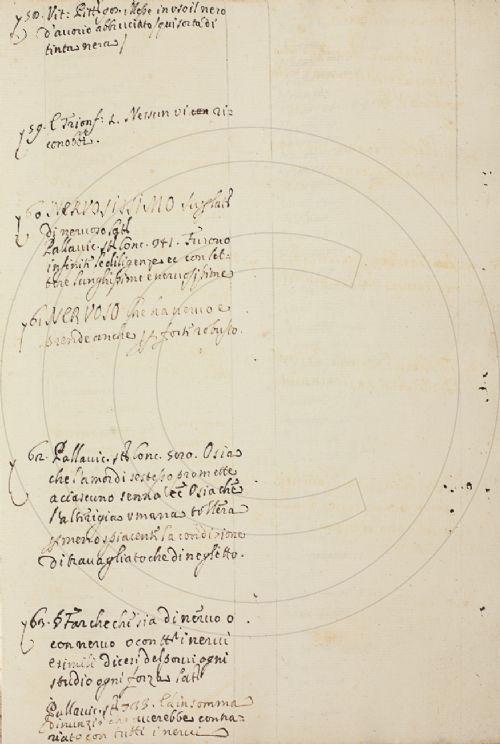 58. Vit: Pitt. 00. Mebe in uso il nero
d'auorio abbruciato squisita di
tinta nera
59. E Trionf: 2. Nessun vi
conobbi.
60. NERVOSISSIMO Superlat
di neruoso Lat
Pallauic. st. Conc. 941. Furono
infinite le diligenze ec con let-
tere lunghissime e neruosissime
61. NERVOSO che ha neruo e
prende anche p forte robusto.
62. Pallauic. st Conc. 5010. Osia
che l'amor di se stesso promette
a ciascuno senna ec Osia che
l'altrigia vmana tollera
meno spiacente la condizione
di trauagliato che di negletto.
63. § Far che chi sia di neruo o
con neruo o con tti i nerui
e simili dicesi del porui ogni
studio ogni forza Lat
Pallauic. st. 733. La insomma
Dinunziò che auerebbe contra-
riato con tutti i nerui